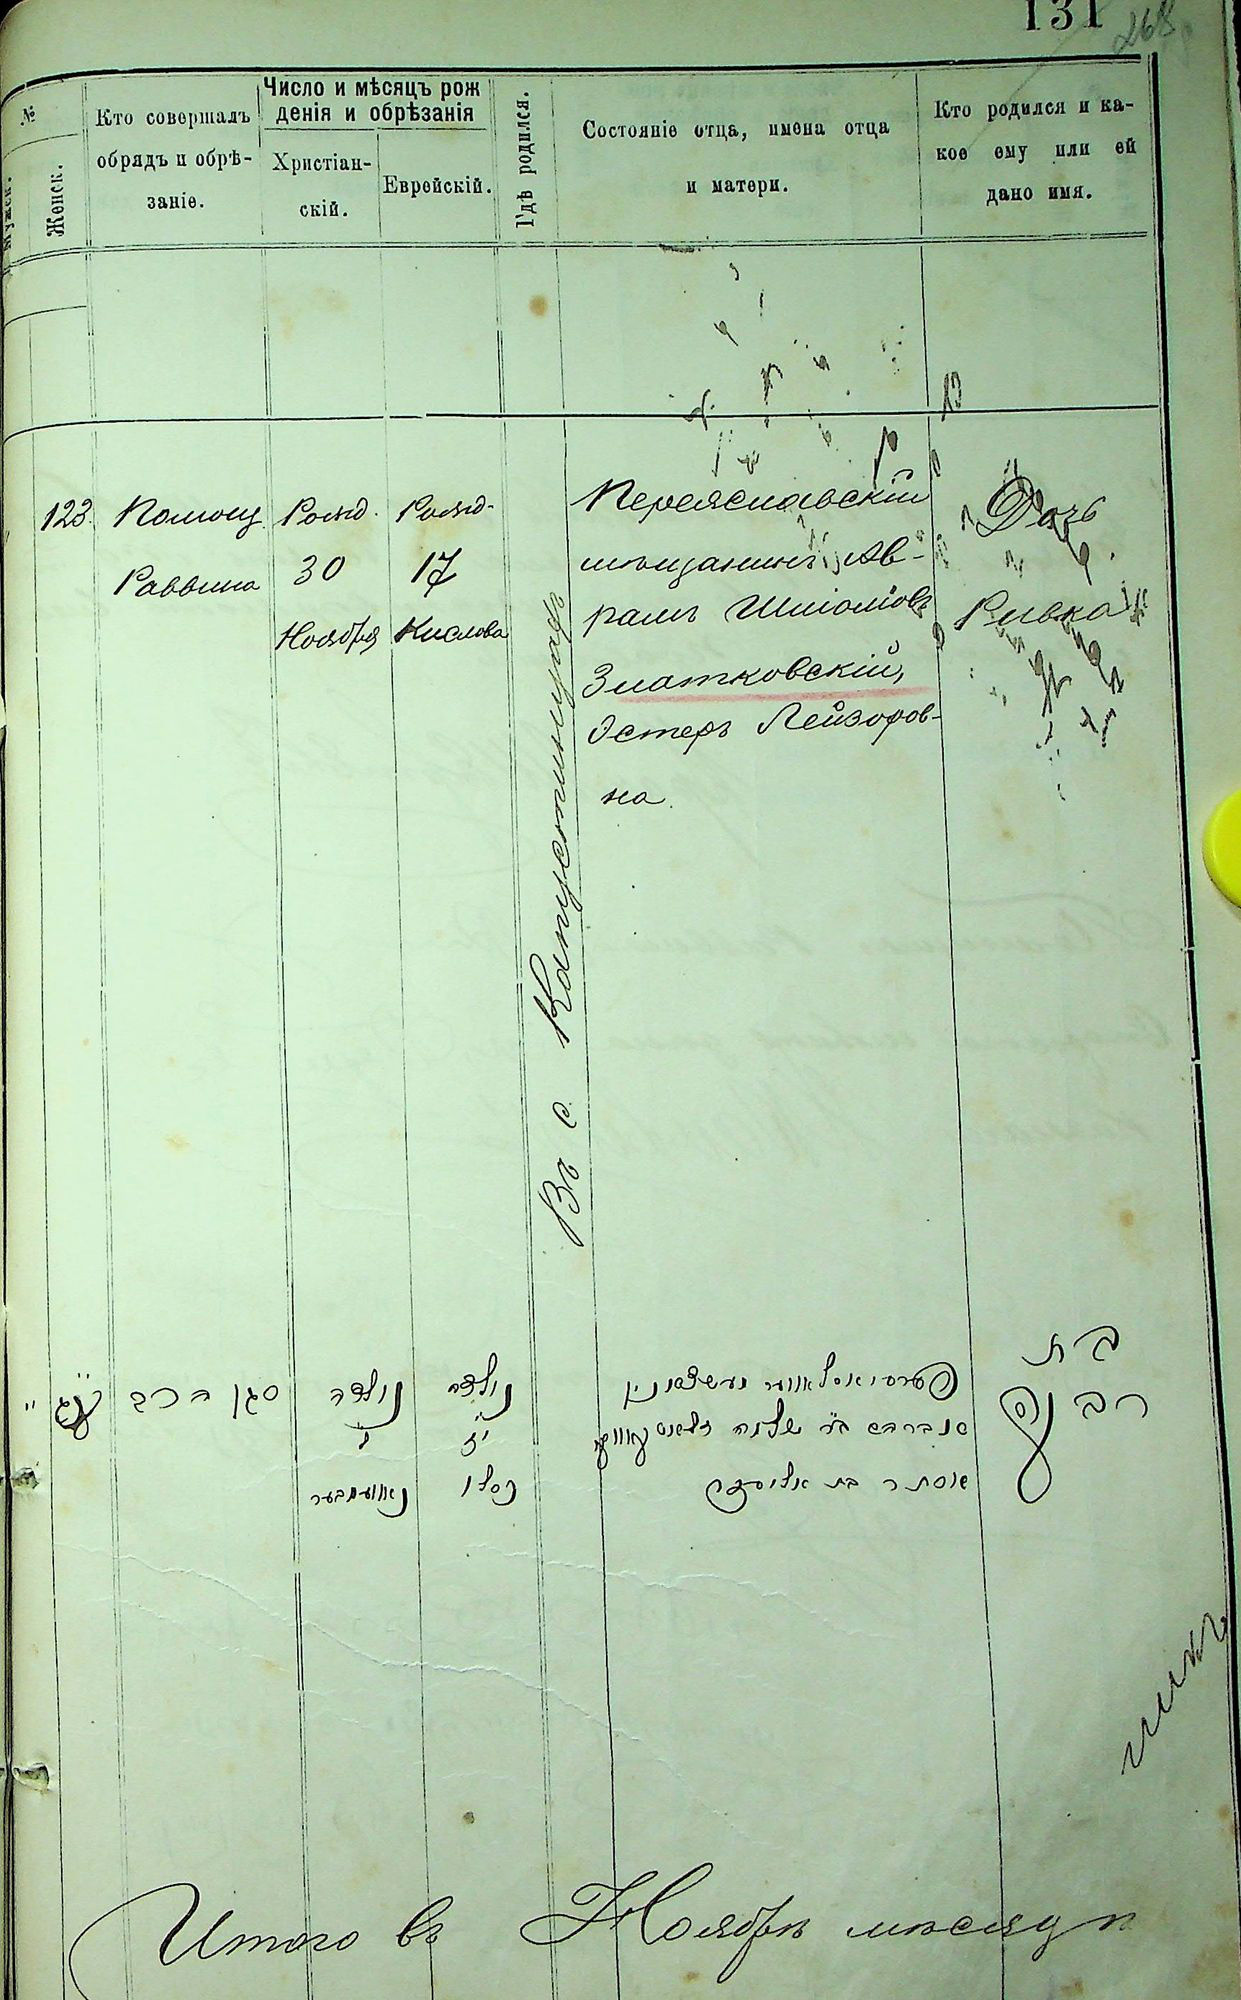 131
268
№
Мужск.
Женск.
Кто совершалъ
обрядъ и обрѣ-
заніе.
Число и мѣсяцъ рож
денія и обрѣзанія
Христіан-
скій.
Еврейскій.
Гдѣ родился.
Состояніе отца, имена отца
и матери.
Кто родился и ка-
кое ему или ей
дано имя.
123.
Помощ.
Раввина
Рожд.
30
Ноября
Рожд.
17
Кислова
Въ с. Капустинцахъ
Переяславскій
мѣщанинъ Ав-
рамъ Шліомовъ
Златковскій,
Эстеръ Лейзоров-
на.
Дочь
Ривка
סגן הרב
נולדה
ל
נאוועמבער
נולדה
יז
כסלו
אסתר בת אליעזר
בת
רבקה
Итого въ Ноябрѣ мѣсяцѣ